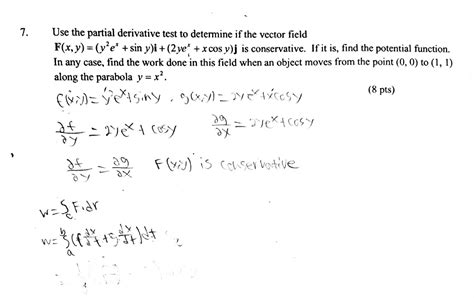 7. Use the partial derivative test to determine if the vector field
F(x, y) = (y²eˣ + sin y)i + (2yeˣ + x cos y)j is conservative. If it is, find the potential function.
In any case, find the work done in this field when an object moves from the point (0, 0) to (1, 1)
along the parabola y = x².
(8 pts)
f(x,y) = y²eˣ + sin y , g(x,y) = 2yeˣ + x cos y
∂f/∂y = 2yeˣ + cos y ∂g/∂x = 2yeˣ + cos y
∂f/∂y = ∂g/∂x F(x,y) is conservative
w = ∫c F · dr
w = ∫